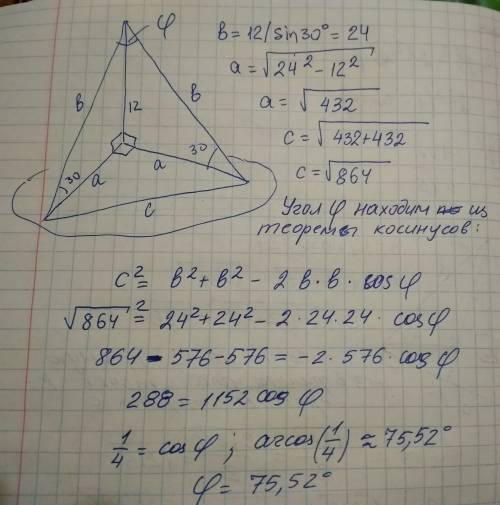 φ
b
b
12
30
30
a
a
c
b = 12/sin30° = 24
a = √24² - 12²
a = √432
c = √432+432
c = √864
Угол φ находим из
теоремы косинусов:
c² = b² + b² - 2 b · b · cosφ
√864² = 24² + 24² - 2 · 24 · 24 · cosφ
864 - 576 - 576 = -2 · 576 · cosφ
288 = 1152 cosφ
1/4 = cosφ ; arccos(1/4) ≈ 75,52°
φ = 75,52°